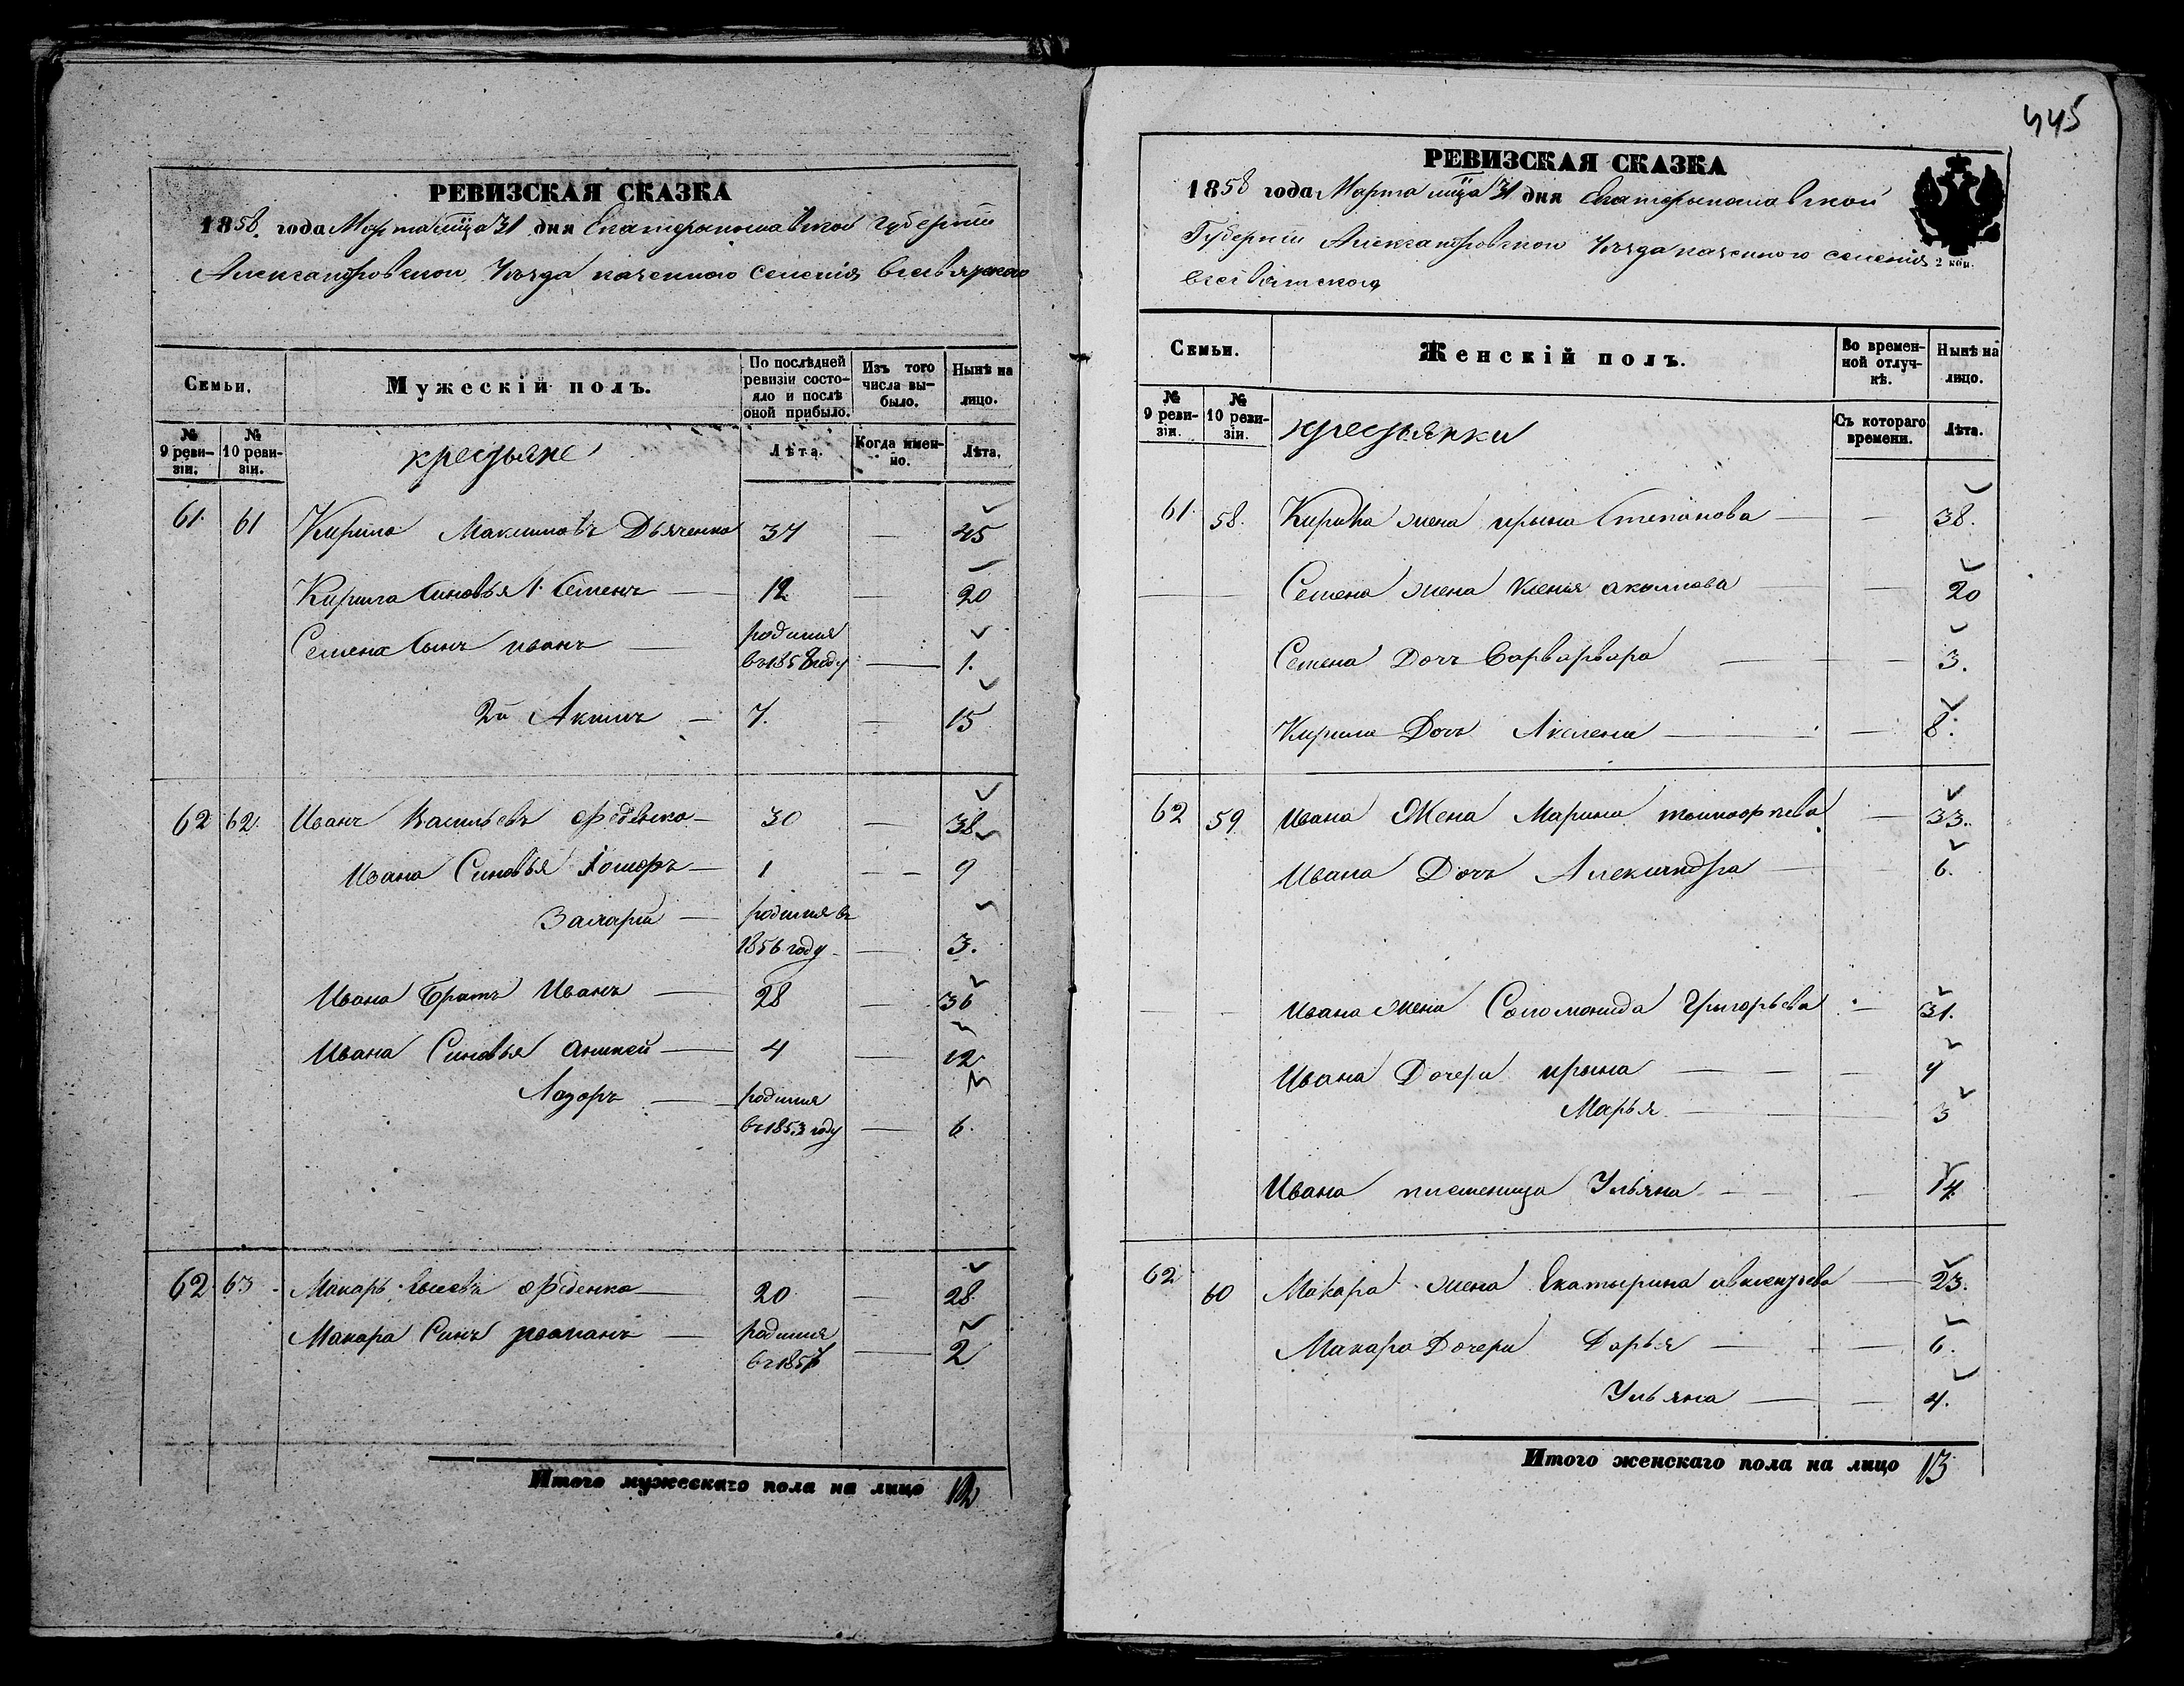 РЕВИЗСКАЯ СКАЗКА
1858 года Марта мца 31 дня Екатеринославской Губернии
Александровской Уезда казенного селения
Семьи.
Мужескій полъ.
По послѣдней ревизіи состояло и послѣ оной прибыло.
Изъ того числа выбыло.
Нынѣ на лицо.
№ 9 ревизіи.
№ 10 ревизіи.
крестьяне
Лѣта.
Когда именно.
Лѣта.
61. 61 Кирило Максимовъ Дьяченко 37 — 45
Кирила Синовья 1. Семенъ — 12 — 20
Семена Сынъ иванъ — родился
въ 1858 году — 1.
2й Акимъ — 7. — 15
62 62. Иванъ Васильевъ Феденко — 30 — 38
Ивана Синовья — 1 — — 9
Захарий — родился въ
1856 году — 3.
Ивана Братъ Иванъ — 28 — 36
Ивана Синовья Аникей — 4 — 12
Лазоръ — родился
въ 1853 году — 6.
62. 63 Макаръ Феденко — 20 — 28.
Макара Синъ романъ — родился
въ 1857 — 2
Итого мужескаго пола на лицо 12
445
РЕВИЗСКАЯ СКАЗКА
1858 года Марта мца 31 дня Екатеринославской
Губернии Александровской Уезда казенного селения
2 коп.
Всесвятского
Семьи.
Женскій полъ.
Во временной отлучкѣ.
Нынѣ на лицо.
№ 9 ревизіи.
№ 10 ревизіи.
крестьянки
Съ котораго времени.
Лѣта.
61. 58. Кирила жена ирына Степанова — — 38.
— — Семена жена Ксенья акимова — — 20
Семена Дочъ Варварвара — — — 3.
Кирила Дочъ Акелена — — 8.
62 59 Ивана Жена Марина — 33.
Ивана Дочъ Александра — 6.
— — Ивана жена Соломонида Григорьева — 31.
Ивана Дочери ирына — — — 9
Марья — — 3
Ивана племеница Ульяна — — — 14
62 60 Макара жена Екатырина — 23.
Макара Дочери Дарья — — 6.
Ульяна — — 4.
Итого женскаго пола на лицо 13